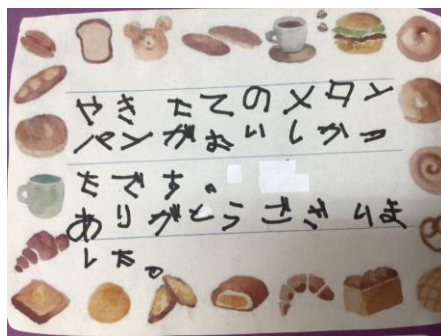 やきたてのメロン
パンがおいしかっ
たです。
ありがとうござりま
した。